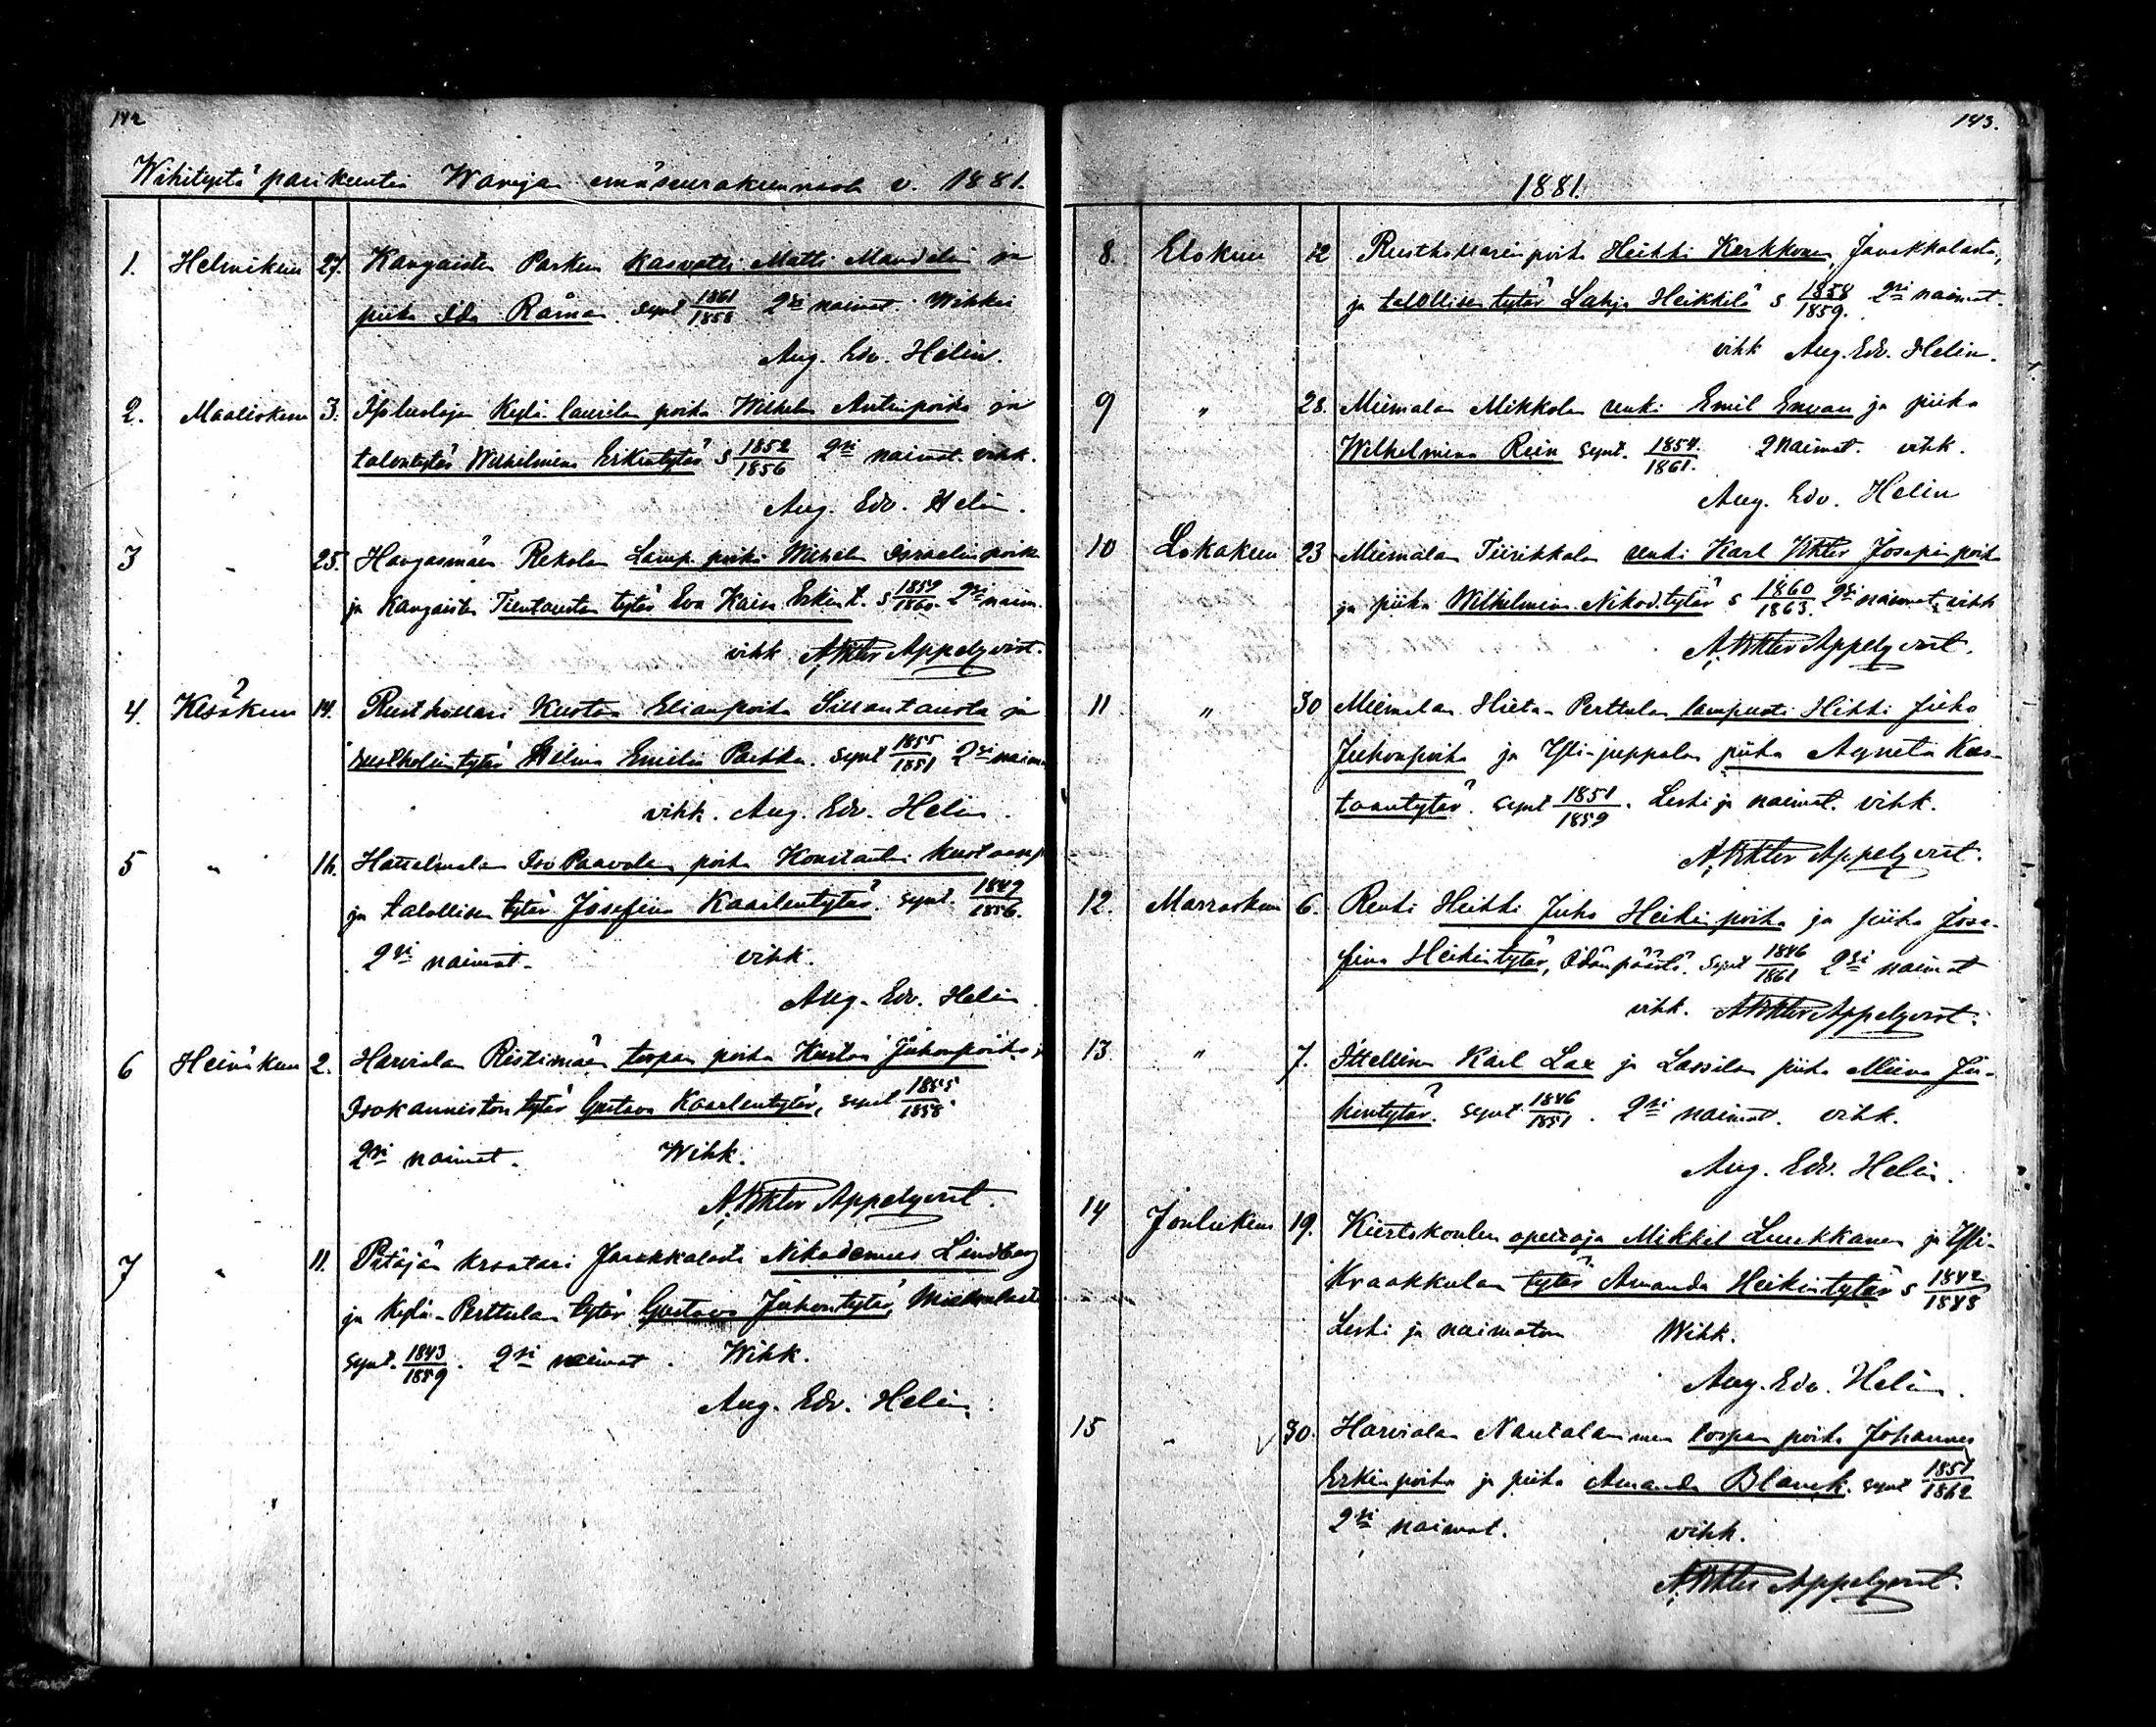 142
Wihityitä parikuntia Wanajan emäseurakunnasta v. 1881.
1. Helmikuu 27. Kangaisten Parkun kasvatti Matti Mandelin ja
piika Ida Råman synt 1861/1858 2si naimat. Wihki
Aug. Edv. Helin.
2. Maaliskuu 3. Kylä laurilan poika Wilhelm Antinpoika ja
talontytär Wilhelmina Erkintytär s 1852/1856 2si naimat. vihk.
Aug. Edv. Helin.
3 " 25. Hangasmäen Rekolan Lamp. poika Wilhelm Israelinpoika
ja Kangaisten Tientaustan tytär Eva Kaisa Erkin t. s 1859/1860. 2si naim.
vihk A. Viktor Appelqvist.
4. Kesäkuu 14. Rusthollari Kustaa Elianpoika Sillantausta ja
rustholin tytär Helina Emilia Parkka. synt 1855/1851 2si naima
vihk. Aug. Edv. Helin.
5 " 16. Hattelmalan Iso Paavolan poika Konstantin Kustaanp
ja talollisen tytär Josefina Kaarlentytär. synt. 1849/1856.
2si naimat. vihk.
Aug. Edv. Helin.
6 Heinäkuu 2. Harvialan Ristimäen torpan poika Kustaa Juhonpoika j
Isokanniston tytär Gustava Kaarlentytär, synt 1855/1858.
2si naimat. Wihk.
A. Viktor Appelqvist.
7 " 11. Pitäjän kraatari Janakkalasta Nikodemus Lindberg
ja Kylä-Perttulan tytär Gustava Juhontytär, Miemalasta
synt. 1843/1859. 2si naimat. Wihk.
Aug. Edv. Helin.
143.
1881.
8. Elokuu 12 Rusthollarin poika Heikki Kerkkonen, Janakkalasta,
ja talollisen tytär Lahja Heikkilä s 1858/1859. 2si naimat.
vihk Aug. Edv. Helin.
9 " 28. Miemalan Mikkolan renki Emil Envan ja piika
Wilhelmina Rein synt. 1854./1861. 2 naimat. vihk.
Aug. Edv. Helin
10 Lokakuu 23 Miemalan Tiirikkalan renki Karl Viktor Josepin poika
ja piika Wilhelmina Nikod.tytär s 1860/1863. 2si naimat, vihk
A. Viktor Appelqvist.
11 " 30 Miemalan Hieta-Perttulan lampuoti Heikki Juho
Juhonpoika ja Yli-juppalan piika Agneta Kus-
taantytär. synt 1851/1859. Leski ja naimat. vihk.
A. Viktor Appelqvist.
12. Marraskuu 6. Renki Heikki Juho Heikinpoika ja piika Jose-
fina Heikintytär, Idänpäästä. synt 1846/1861 2si naimat
vihk. A. Viktor Appelqvist.
13 " 7. Ittellinen Karl Lax ja Lassilan piika Miina Ju-
hontytär. synt 1846/1851. 2si naimat. vihk.
Aug. Edv. Helin.
14 Joulukuu 19. Kiertokoulun opettaja Mikkel Luukkanen ja Yli-
Kraakkulan tytär Amanda Heikintytär s 1842/1848
Leski ja naimaton Wihk.
Aug. Edv. Helin.
15 " 30. Harvialan Nautalammen torpan poika Johannes
Erkinpoika ja piika Amanda Blanck. synt 1857/1862
2si naimat. vihk.
A. Viktor Appelqvist.